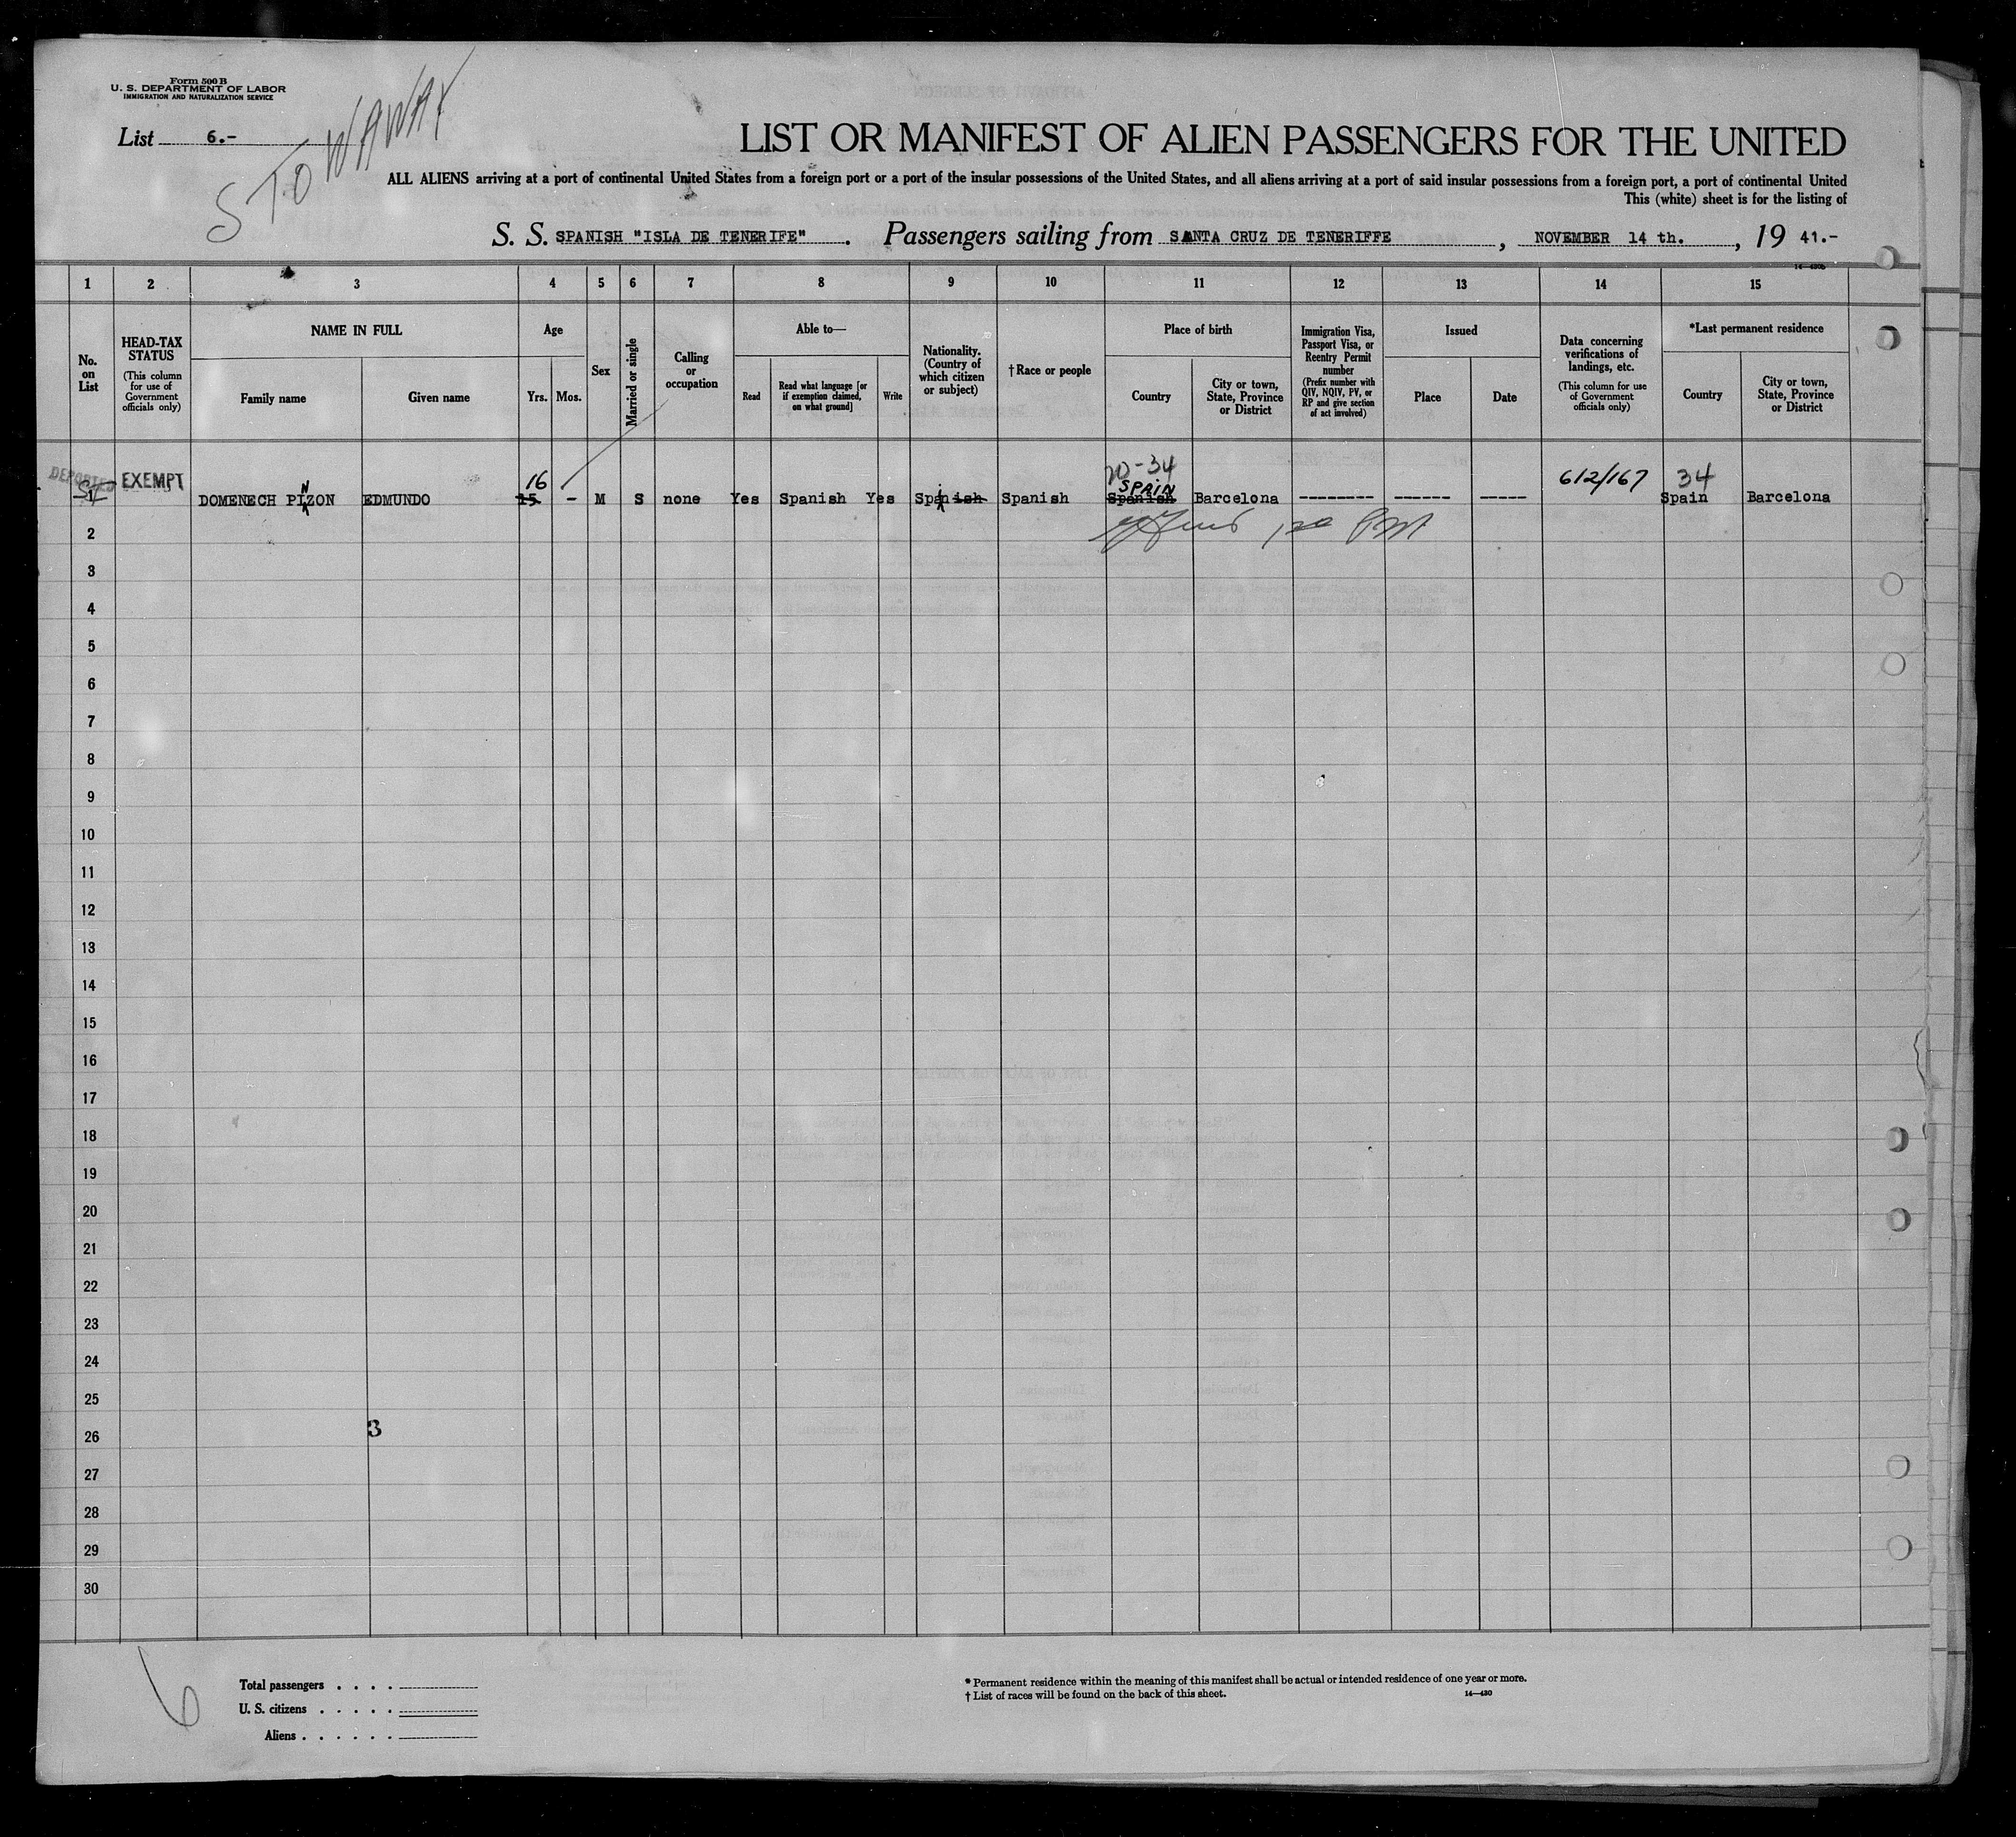 Form 500 B
U. S. DEPARTMENT OF LABOR
IMMIGRATION AND NATURALIZATION SERVICE
List 6.-
STOWAWAY
LIST OR MANIFEST OF ALIEN PASSENGERS FOR THE UNITED
ALL ALIENS arriving at a port of continental United States from a foreign port or a port of the insular possessions of the United States, and all aliens arriving at a port of said insular possessions from a foreign port, a port of continental United
This (white) sheet is for the listing of
S. S. SPANISH "ISLA DE TENERIFE" . Passengers sailing from SANTA CRUZ DE TENERIFFE , NOVEMBER 14 th. , 19 41.-
1 2 3 4 5 6 7 8 9 10 11 12 13 14 15
No. on List
HEAD-TAX STATUS
(This column for use of Government officials only)
NAME IN FULL
Family name
Given name
Age
Yrs.
Mos.
Sex
Married or single
Calling or occupation
Able to—
Read
Read what language [or if exemption claimed, on what ground]
Write
Nationality. (Country of which citizen or subject)
†Race or people
Place of birth
Country
City or town, State, Province or District
Immigration Visa, Passport Visa, or Reentry Permit number
(Prefix number with QIV, NQIV, PV, or RP and give section of act involved)
Issued
Place
Date
Data concerning verifications of landings, etc.
(This column for use of Government officials only)
*Last permanent residence
Country
City or town, State, Province or District
DEPORTED
EXEMPT
16
20-34
SPAIN
612/167
34
1 DOMENECH PIZON EDMUNDO 15 - M S none Yes Spanish Yes Spanish Spanish Spanish Barcelona -------- ------ ----- Spain Barcelona
N
2
3
4
5
6
7
8
9
10
11
12
13
14
15
16
17
18
19
20
21
22
23
24
25
26
3
27
28
29
30
6
Total passengers . . . .
U. S. citizens . . . . .
Aliens . . . . . .
* Permanent residence within the meaning of this manifest shall be actual or intended residence of one year or more.
† List of races will be found on the back of this sheet.
14—430